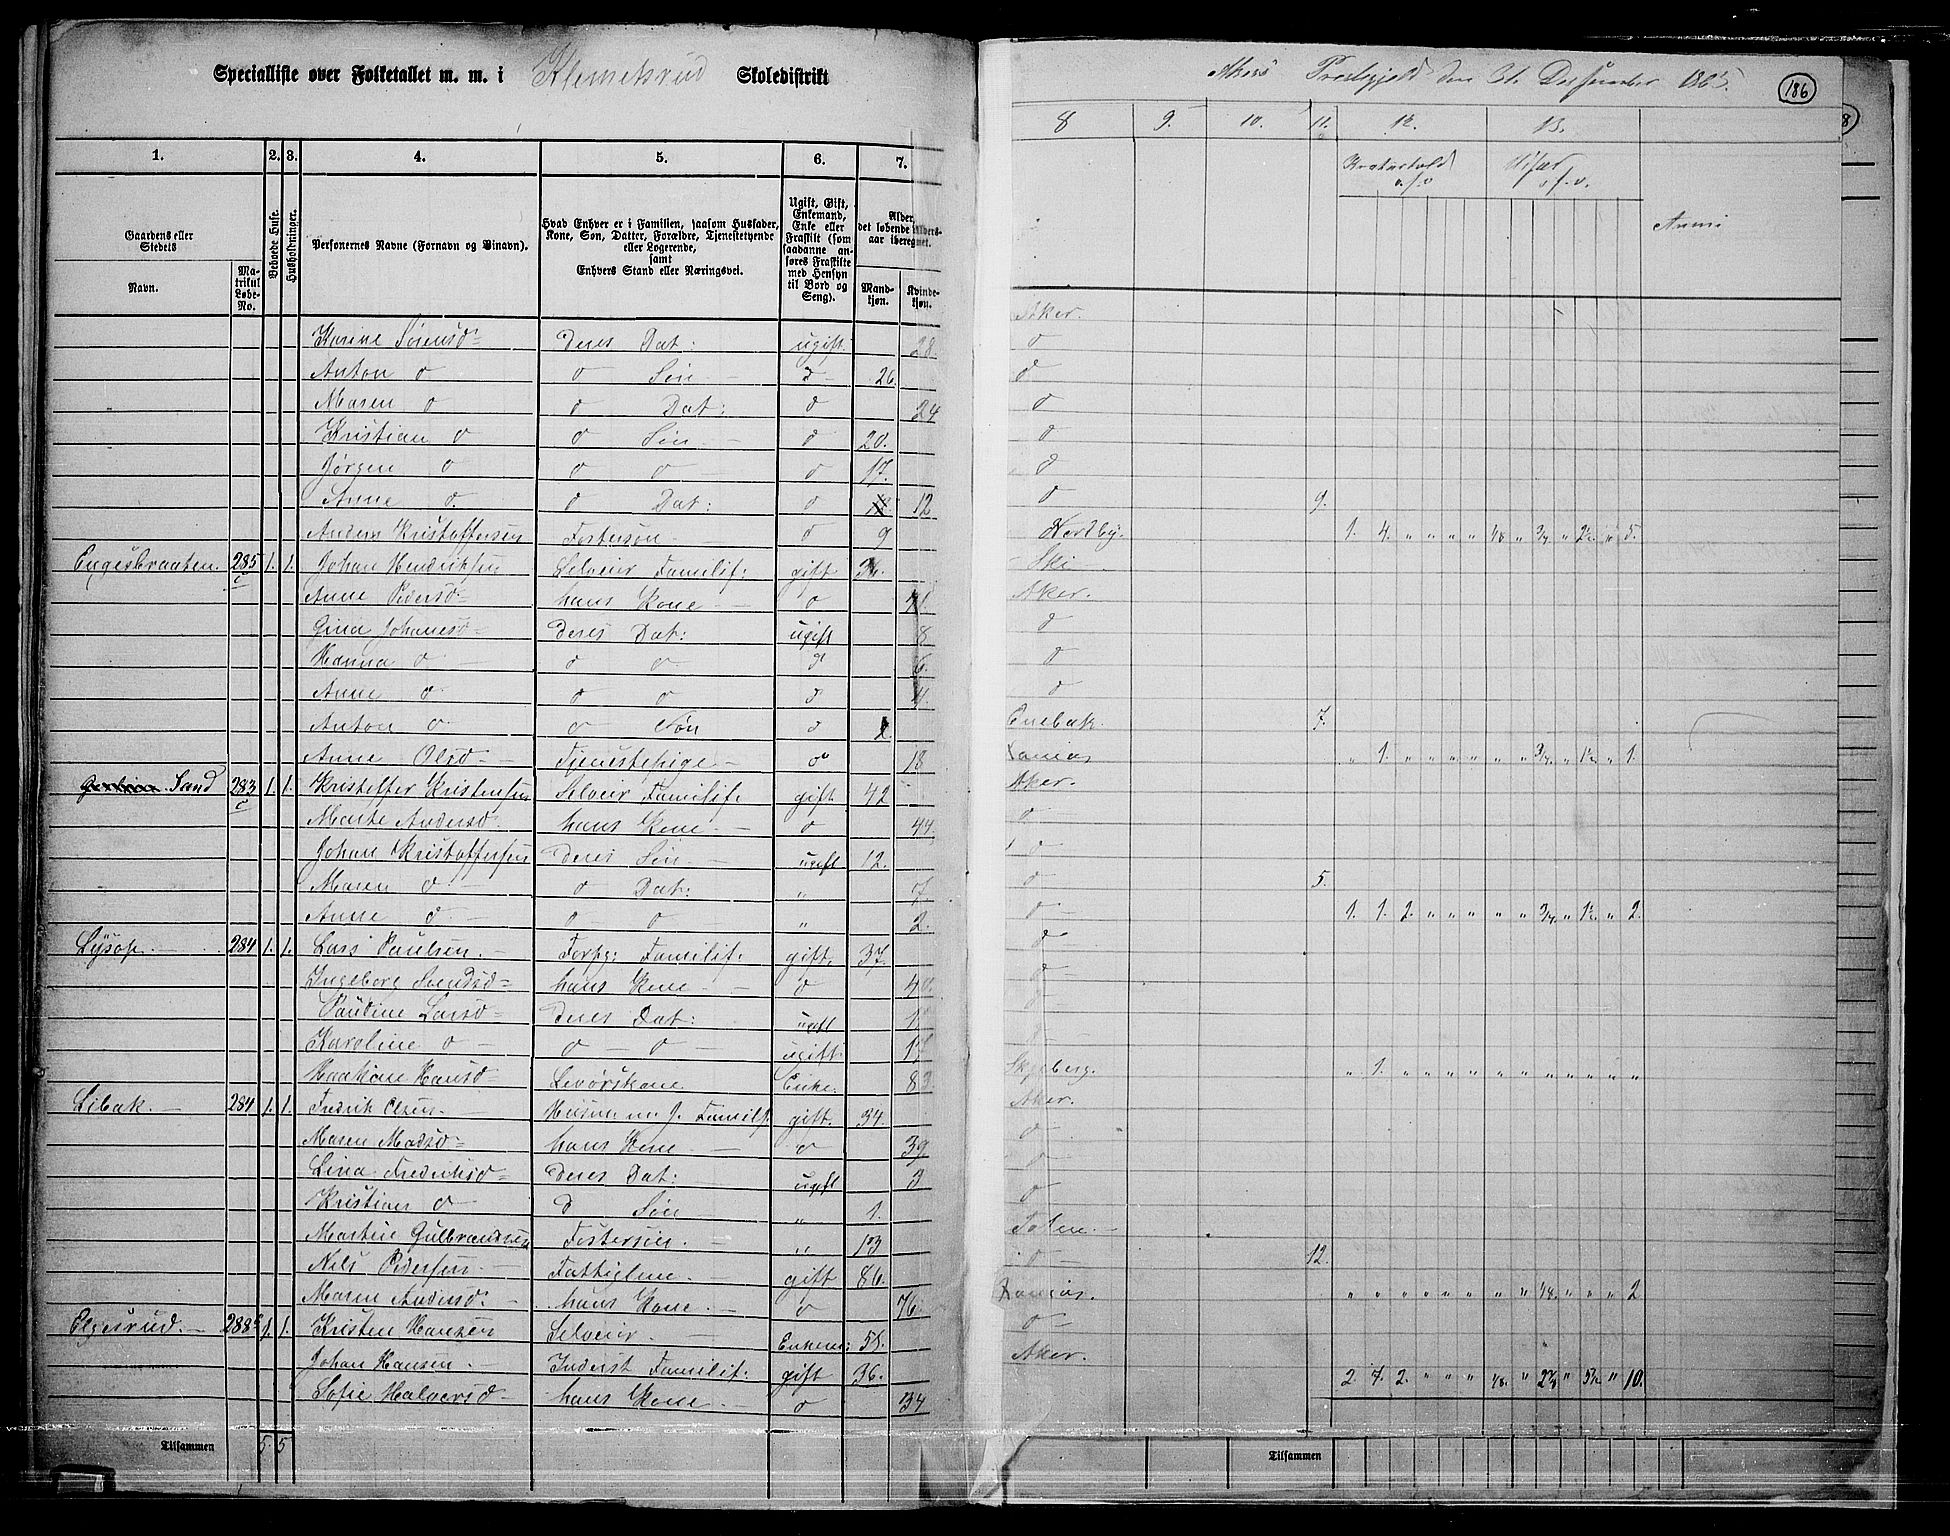 Specialliste over Folketallet m. m. i Klemetsrud Skoledistrikt
Akers Prestegjeld den 31 December 1865.
186
1. 2. 3. 4. 5. 6. 7.
8 9. 10. 11. 12. 13.
Gaardens eller Stedets
Navn.
Matrikul Løbe-No.
Beboede Huse.
Husholdninger.
Personernes Navne (Fornavn og Binavn).
Hvad Enhver er i Familien, saasom Husfader, Kone, Søn, Datter, Forældre, Tjenestetyende eller Logerende, samt Enhvers Stand eller Næringsvei.
Ugift, Gift, Enkemand, Enke eller Fraskilt (som saadanne anføres Fraskilte med Hensyn til Bord og Seng).
Alder, det løbende Alders-aar iberegnet.
Mand-kjøn.
Kvinde-kjøn.
Kreaturhold o.s.v
Udsæd o.s.v.
Karine Sørensd= Deres Dat: ugift 28.
Anton o o Søn - o 26.
Maren o o Dat: o 24
Kristian o o Søn - o 20.
Jørgen o o o o 17.
Anne o. o Dat: o 12
Anders Kristoffersen Fostersøn - o 9
Engesbraaten. 285 c 1. 1. Johan Hendriksen Selveier Familif: gift
Anne Pedersd= hans Kone - o
Gina Johanesd= Deres Dat: ugift 8
Hanna o o o o 6.
Anne o o o o 4.
Anton o o Søn o
Anne Olsd - Tjenestepige - o 18
Sand 283 c 1. 1. Kristoffer Kristensen Selveier Familif. gift 42
Marte Andersd. hans Kone - o 44.
Johan Kristoffersen Deres Søn ugift 12.
Maren o - o Dat: " 7
Anne o. - o - o " 2.
Lysop. 284 1. 1. Lars Paulsen. Forpg: Familif. gift. 37
Ingeborg Svendsd= hans Kone - o 40.
Paudine Larsd= Deres Dat: ugift
Karoline o - o - o - ugift
Hansd= Enke. 83
Libak. 284 1. 1. Fredrik Olsen. Husm: m. J. Familif. gift. 34.
Maren Madsd= hans Kone - o 39
Lina Fredriksd= Deres Dat: ugift 3
Kristian o o Søn " 1.
Martin Gulbrandsen Fostersøn. " 13
Nils Pedersen - Fattiglem. gift 86.
Maren Andersd. - hans Kone. o 76
288 1. 1. Kristen Hansen Selveier. Enkem: 55.
Johan Hansen. Inderst Familif. gift 36.
Sofie Halvorsd= hans Kone. o 34
Tilsammen 5. 5
Aker.
o
o
o
o
o
o 9.
Nordby. 1. 4. " " " " 1/8 " 3/4 " 2½ " 5.
Ski
Aker.
o
o
o
Enebak. 7.
" 1. " " " " " " 3/4 " 1½ " 1.
Aker.
o
o
o 5.
o 1. 1. 2. " " " " " 3/4 " 1½ " 2.
o
o
o
Skjeberg. " 1. " " " " " " " " " " "
Aker.
o
o
o
Toten.
o - 12.
" " " " " " " " 1/8 " " " 2
o
Aker.
2. 7. 2. " " " 1/8 " " 5½ " 10.
Tilsammen